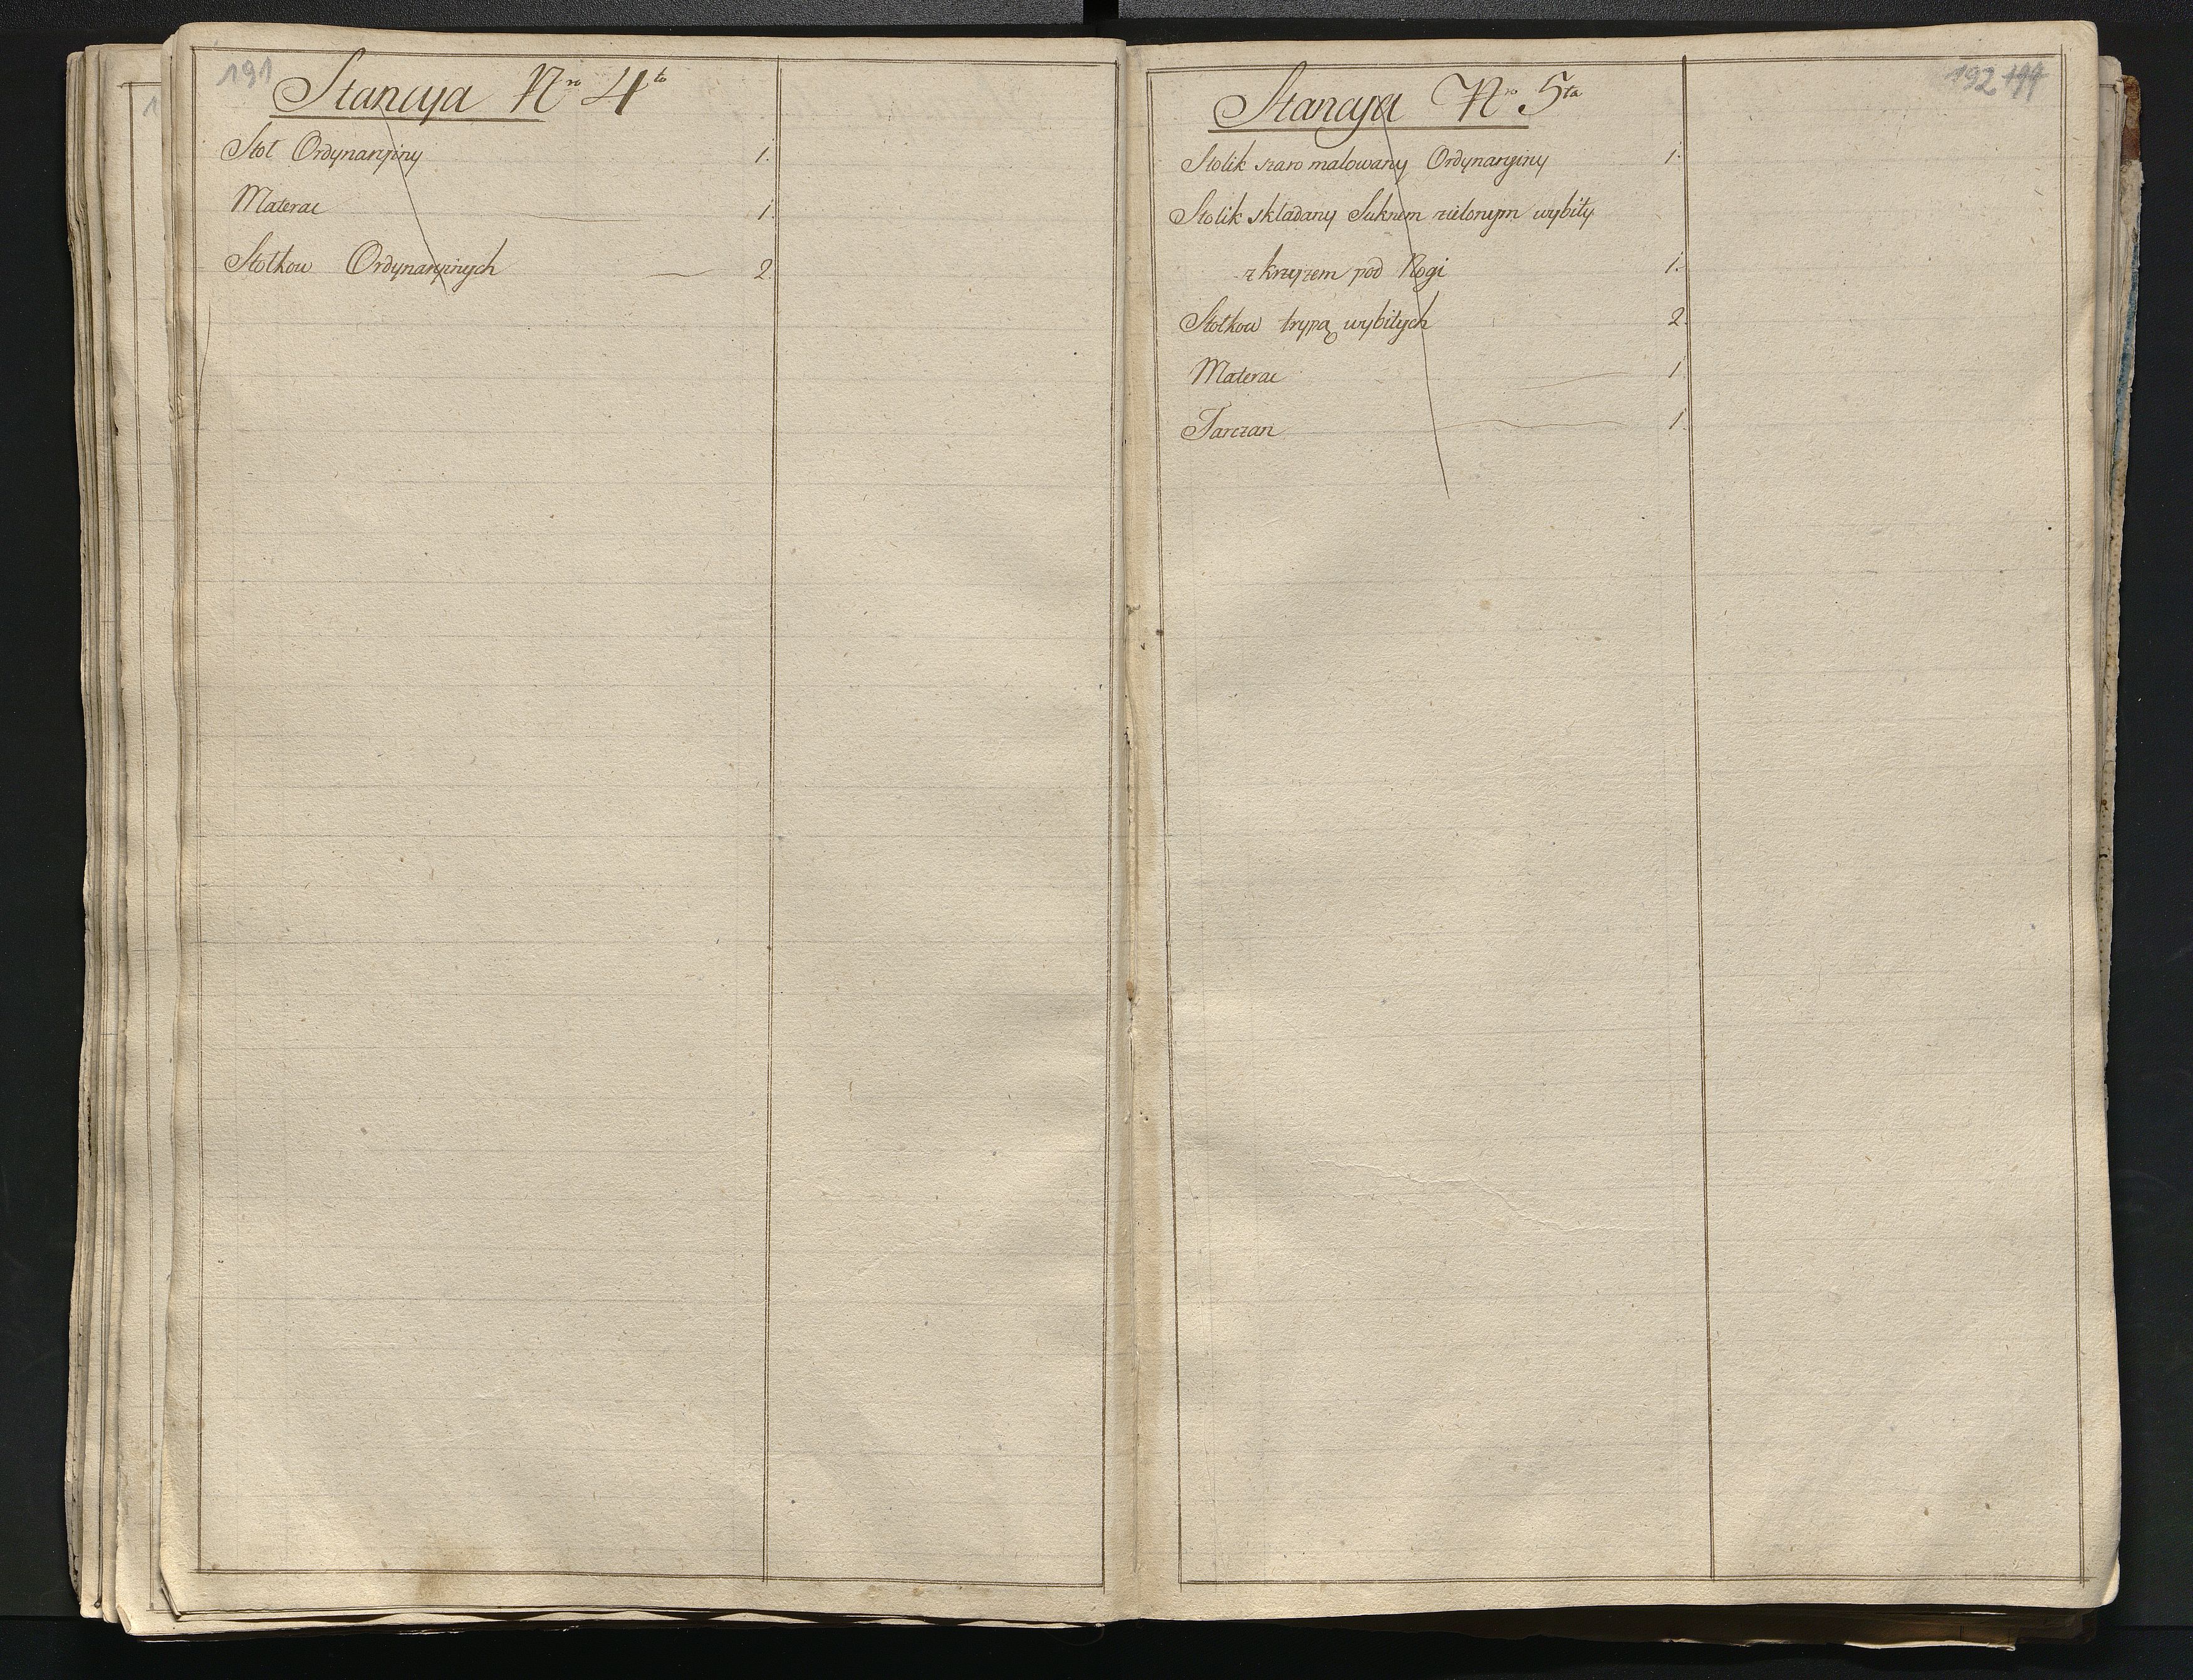 191
Stancyja Nro 4to
Stoł Ordynaryiny 1.
Materac 1.
Stołkow Ordynaryinych 2.
192
Stancyja Nro 5ta
Stolik szaro malowany Ordynaryiny 1.
Stolik składany Suknem zielonym wybity
z krzyżem pod Nogi 1.
Stołkow trypą wybitych 2.
Materac 1.
Tarczan 1.